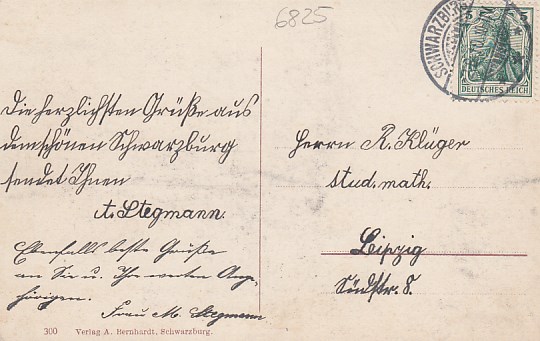 6825
SCHWARZBURG
5 5
DEUTSCHES REICH
Die herzlichsten Grüße aus
dem schönen Schwarzburg
sendet Ihnen
A. Stegmann.
Ebenfalls beste Grüße
an Sie u. Ihre werten Ange-
hörigen.
Frau M. Stegmann
Herrn R. Klüger
stud. math.
Leipzig
Südstr. 8.
300 Verlag A. Bernhardt, Schwarzburg.